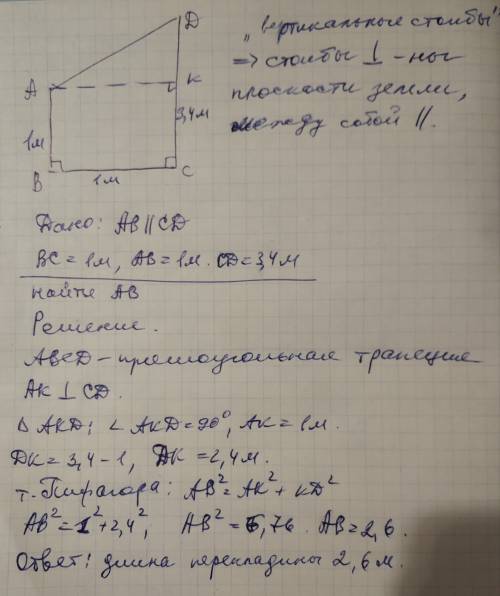 D
„вертикальные столбы"
=> столбы ⊥-ны
плоскости земли,
между собой ||.
A
K
3,4м
1м
B
1м
C
Дано: AB||CD
BC = 1м, AB = 1м. CD = 3,4м
найти AB
Решение.
ABCD - прямоугольная трапеция
AK ⊥ CD.
Δ AKD: ∠ AKD = 90°, AK = 1м.
DK = 3,4 - 1, DK = 2,4м.
т. Пифагора: AB² = AK² + KD²
AB² = 1² + 2,4², AB² = 6,76. AB = 2,6.
Ответ: длина перекладины 2,6 м.